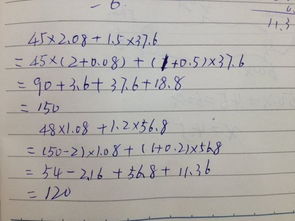 = 6.
11.3
45×2.08+1.5×37.6
=45×(2+0.08)+(1+0.5)×37.6
=90+3.6+37.6+18.8
=150
48×1.08+1.2×56.8
=(50-2)×1.08+(1+0.2)×56.8
=54-2.16+56.8+11.36
=120